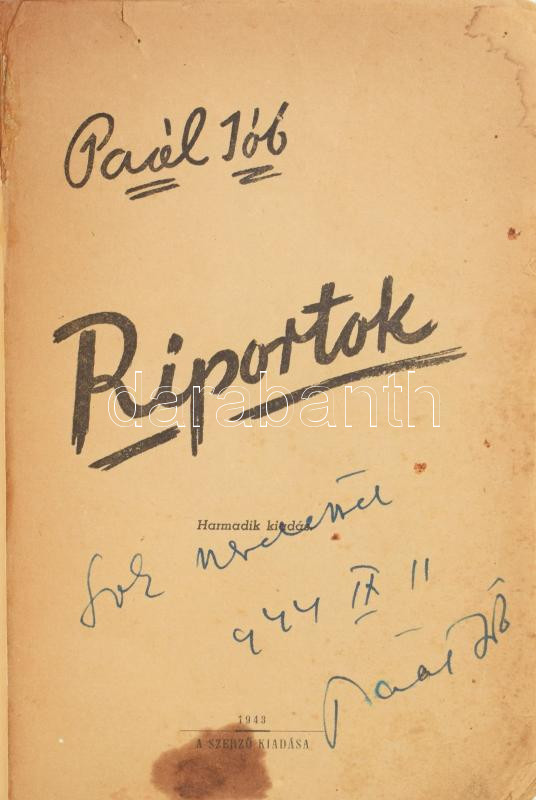 Paál Jób
Riportok
darabanth
Harmadik kiadás
Sok szeretettel
944 IX 11
Paál Jób
1943
A SZERZŐ KIADÁSA